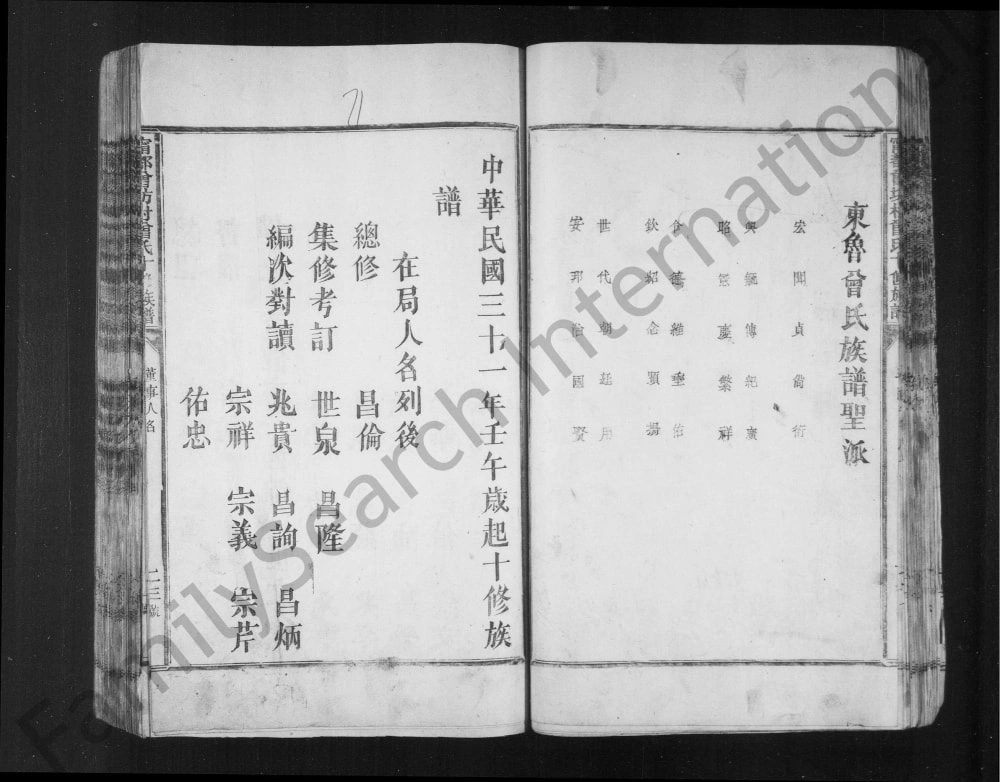 東魯曾氏族譜聖派
宏聞貞尚衍
興毓傳紀廣
昭憲慶繁祥
令德維垂佑
欽紹念顯揚
世代朝廷用
安邦治國
中華民國三十一年壬午歲起十修族
譜
在局人名列後
總修 昌倫
集修考訂 世泉 昌隆
編次對讀 兆貴 昌詢 昌炳
宗祥 宗義 宗芹
佑忠
董事人名
二三號
FamilySearch International